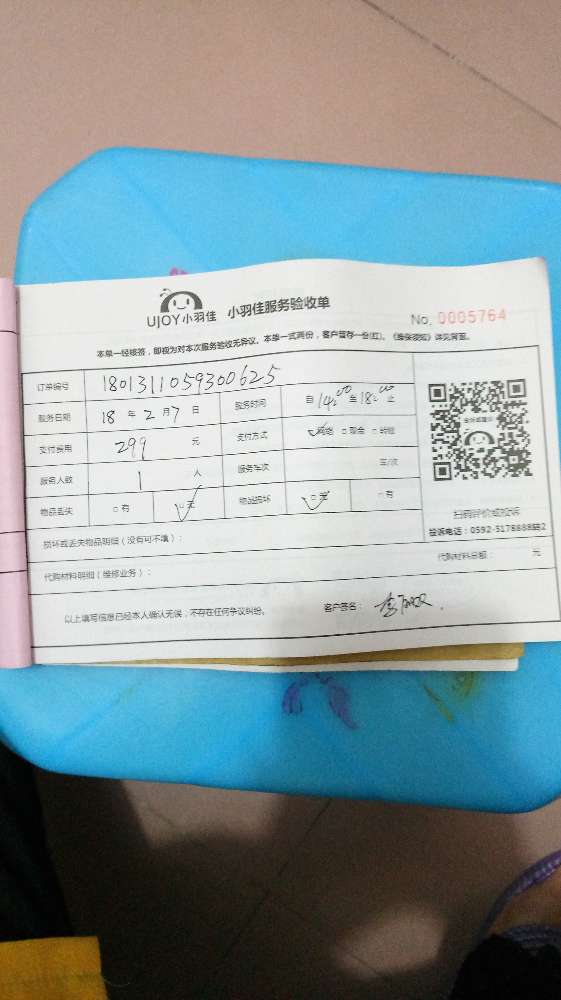 UJOY小羽佳 小羽佳服务验收单
No. 0005764
本单一经核签，即视为对本次服务验收无争议。本单一式两份，客户暂存一份(红)。《维保须知》详见背面。
订单编号 1801311059300625
服务日期 18 年 2 月 7 日 服务时间 自 14:00 至 18:00 止
支付费用 299 元 支付方式 ☑网络 □现金 □转账
服务人数 1 人 服务车次 车/次
物品丢失 □有 ☑无 物品损坏 ☑无 □有
扫码评价或投诉
投诉电话：0592-5178888
损坏或丢失物品明细（没有可不填）：
代购材料明细（维修业务）： 代购材料总额： 元
以上填写信息已经本人确认无误，不存在任何争议纠纷。 客户签名：